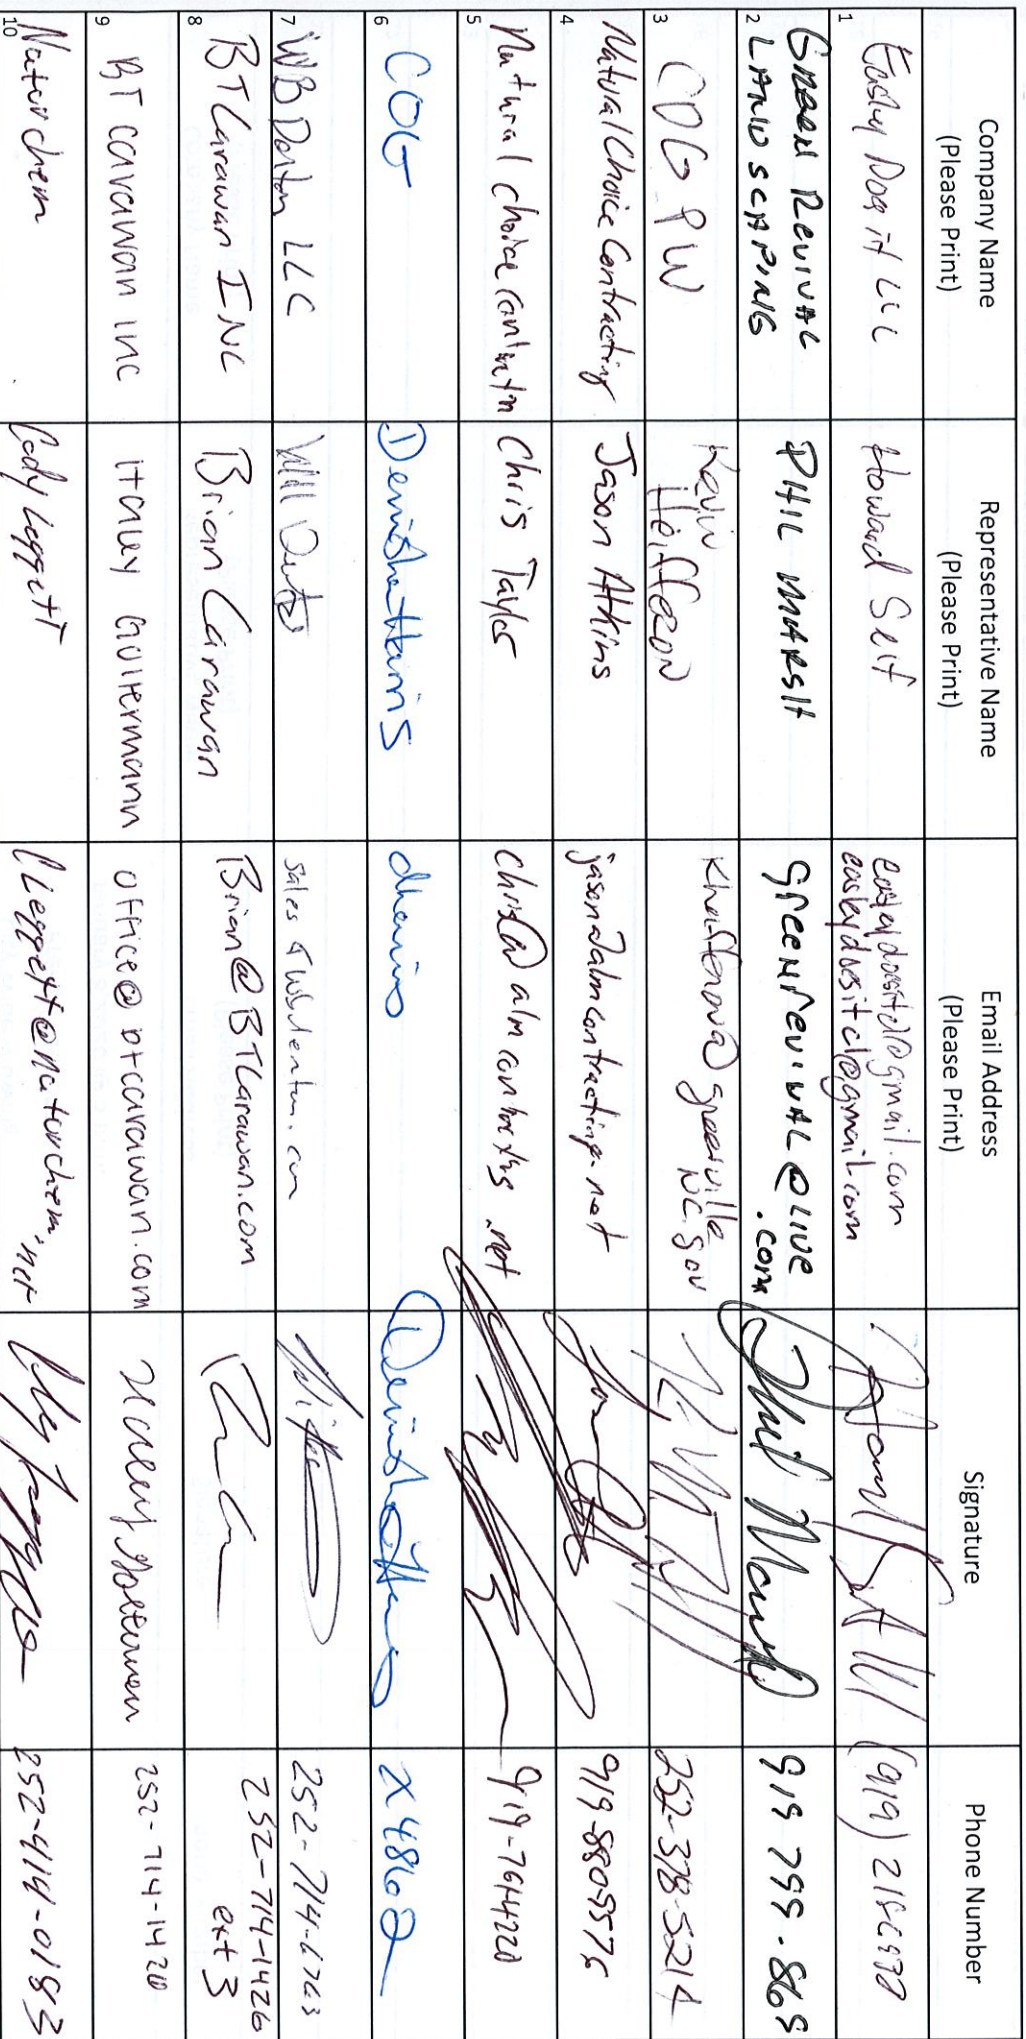 Company Name
(Please Print)
Representative Name
(Please Print)
Email Address
(Please Print)
Signature
Phone Number
1
Easly Dog it LLC
Howard Self
easleydositcl@gmail.com
(919)
2
GREEN REVIVAL
LANDSCAPING
PHIL MARSH
GREENREVIVAL@LIVE
.COM
Phil Marsh
919 799-869
3
COG PW
Kevin
Heifferon
greenville
NC.gov
252-378-5214
4
Natural Choice Contracting
Jason Atkins
jason@almcontracting.net
919-880-5575
5
Natural choice
Chris Taylor
chris@almcontracting.net
919-7644220
6
COG
Denisha Harris
dharris
Denisha Harris
x4862
7
WB Denton LLC
Will
252-714-6763
8
BTCarawan INC
Brian Carawan
Brian@BTCarawan.com
252-714-1426
ext 3
9
BT carawan inc
Haley Goltermann
office@btcarawan.com
Haley Goltermann
252-714-1420
10
Naturchem
Cody Leggett
cleggett@naturchem.net
252-414-0183